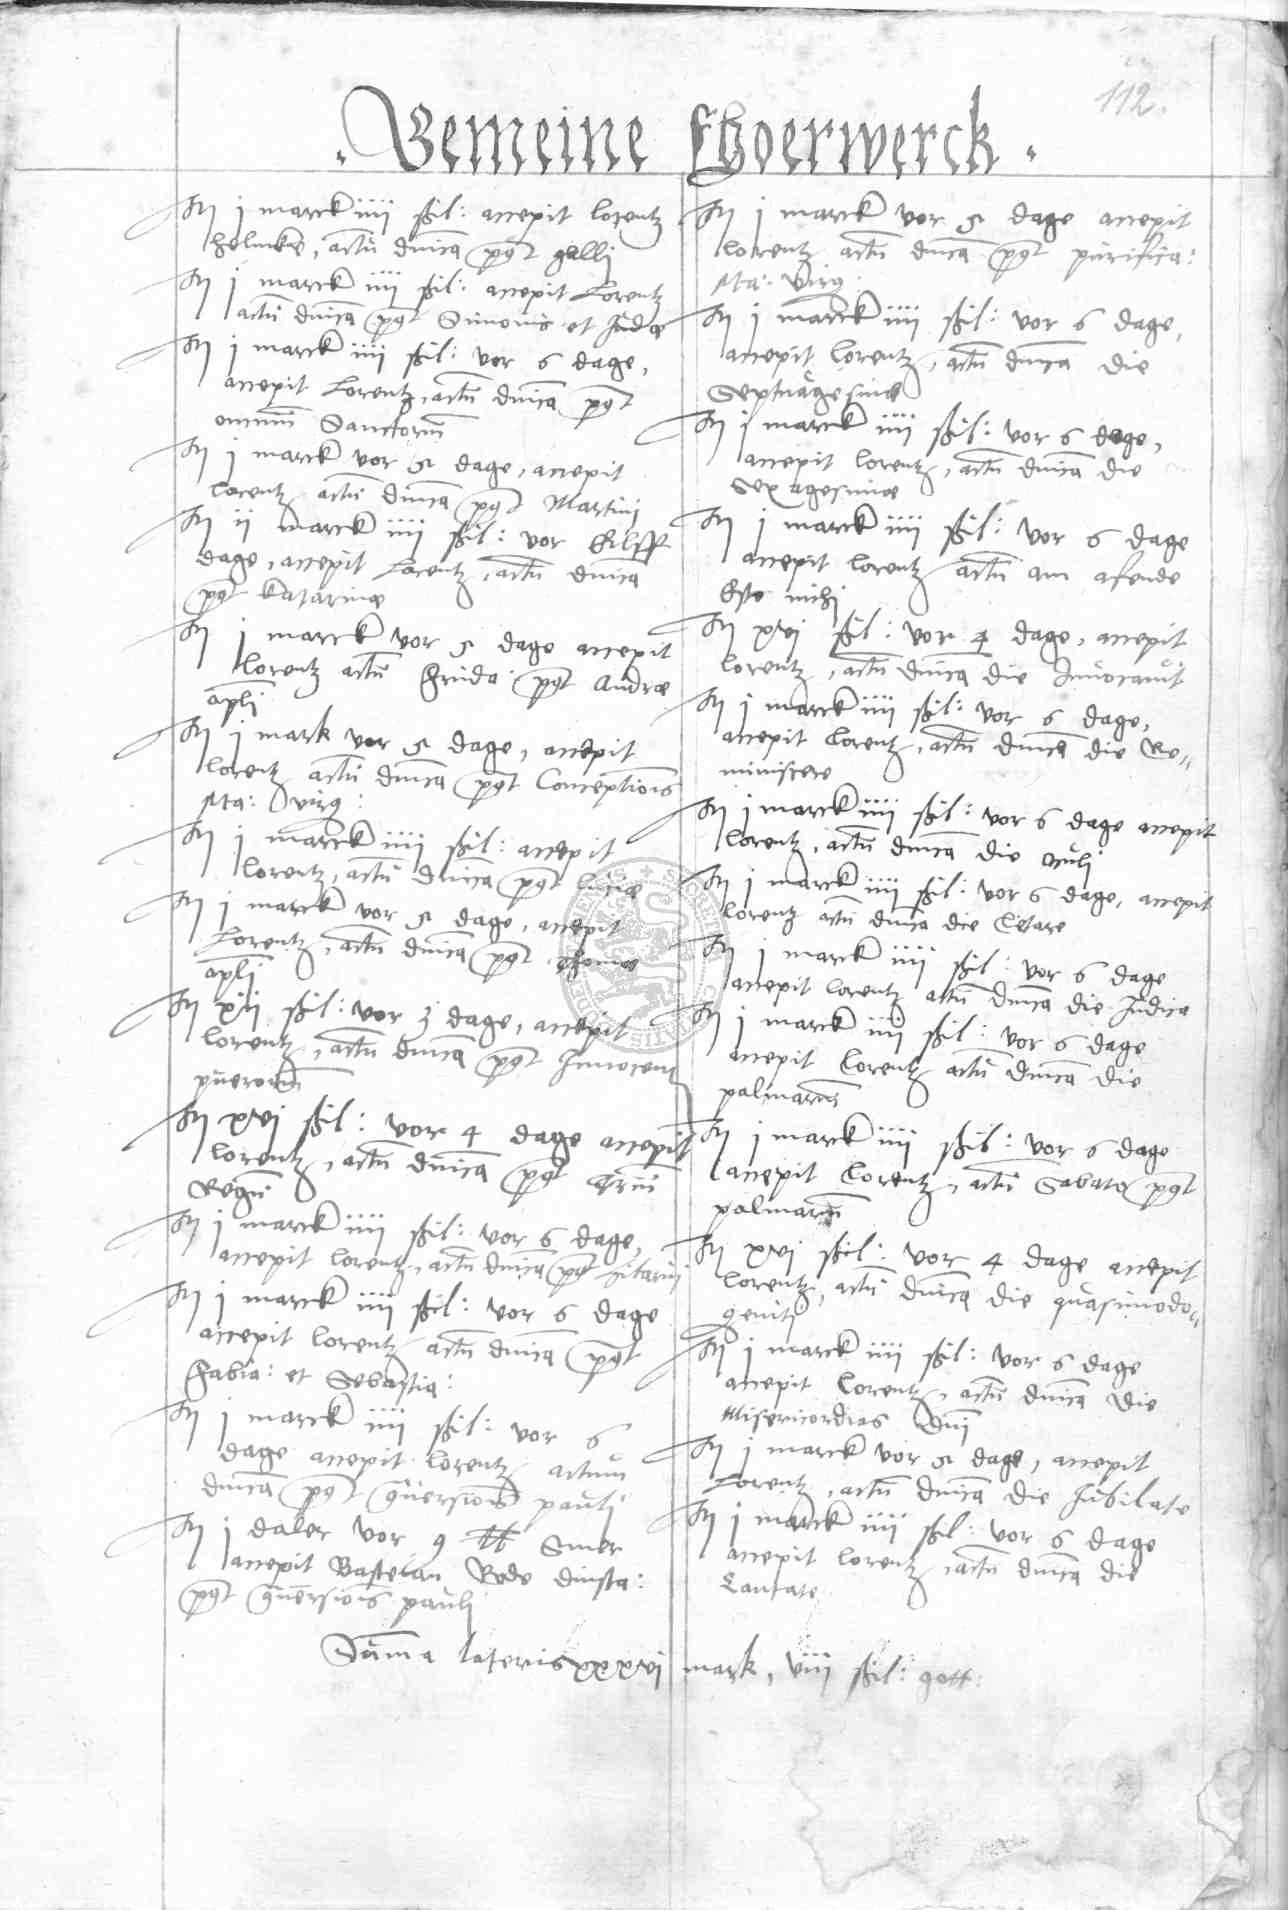 112.
. Gemeine Choerwerck .
Itj j marck iiij ßil: accepit lorentz
helmken, actū dnicā pꝰt galli
Itj j marck iiij ßil: accepit Lorentz
actū dnicā pꝰt Simonis et Judæ
Itj j marck iiij ßil: vor 6 dage,
accepit Lorentz, actū dnicā pꝰt
omniū Sanctorū
Itj j marck vor 5 dage, accepit
lorentz actū dnicā pꝰt Martini
Itj ij marck iiij ßil: vor Eilff
dage, accepit Lorentz, actū dnicā
pꝰt katarinæ
Itj j marck vor 5 dage accepit
lorentz actū frida: pꝰt Andræ
apli
Itj j mark vor 5 dage, accepit
lorentz actū dnicā pꝰt Conceptiōis
Ma: virg:
Itj j marck iiij ßil: accepit
lorentz, actū dnicā pꝰt luciæ
Itj j marck vor 5 dage, accepit
Lorentz, actū dnicā pꝰt Thomæ
apli
Itj xij ßil: vor 3 dage, accepit
lorentz, actū dnicā pꝰt Innocent
puerorū
Itj xvi ßil: vor 4 dage accepit
lorentz, actū dnicā pꝰt triū
Regū
Itj j marck iiij ßil: vor 6 dage,
accepit lorentz, actū dnicā pꝰt hilarij
Itj j marck iiij ßil: vor 6 dage
accepit lorentz actū dnicā pꝰt
Fabia: et Sebastia:
Itj j marck iiij ßil: vor 6
dage accepit lorentz actum
dnicā pꝰt cōuersiōis pauli
Itj j daler vor 9 ℔ Smer
accepit Bastelan Rode dinsta:
pꝰt cōuersiōis pauli
Itj j marck vor 5 dage accepit
lorentz actū dnicā pꝰt purifica:
Ma: virg:
Itj j marck iiij ßil: vor 6 dage,
accepit lorentz, actū dnicā die
Septuagesimæ
Itj j marck iiij ßil: vor 6 dage,
accepit lorentz, actū dnicā die
Sexagesimæ
Itj j marck iiij ßil: vor 6 dage
accepit lorentz actū am afende
Esto michi
Itj xvi ßil: vor 4 dage, accepit
lorentz, actū dnicā die Inuocauit
Itj j marck iiij ßil: vor 6 dage,
accepit lorentz, actū dnicā die Re„
miniscere
Itj j marck iiij ßil: vor 6 dage accepit
lorentz, actū dnicā die oculi
Itj j marck iiij ßil: vor 6 dage, accepit
lorentz actū dnicā die letare
Itj j marck iiij ßil: vor 6 dage
accepit lorentz actū dnicā die Judica
Itj j marck iiij ßil: vor 6 dage
accepit lorentz actū dnicā die
palmarū
Itj j marck iiij ßil: vor 6 dage
accepit lorentz, actū Sabato pꝰt
palmarū
Itj xvi ßil: vor 4 dage accepit
lorentz, actū dnicā die quasimodo„
geniti
Itj j marck iiij ßil: vor 6 dage
accepit lorentz, actū dnicā die
Misericordias Dni
Itj j marck vor 5 dage, accepit
Lorentz, actū dnicā die Jubilate
Itj j marck iiij ßil: vor 6 dage
accepit lorentz, actū dnicā die
Cantate
Suma lateris xxxvi mark, viij ßil: gott: